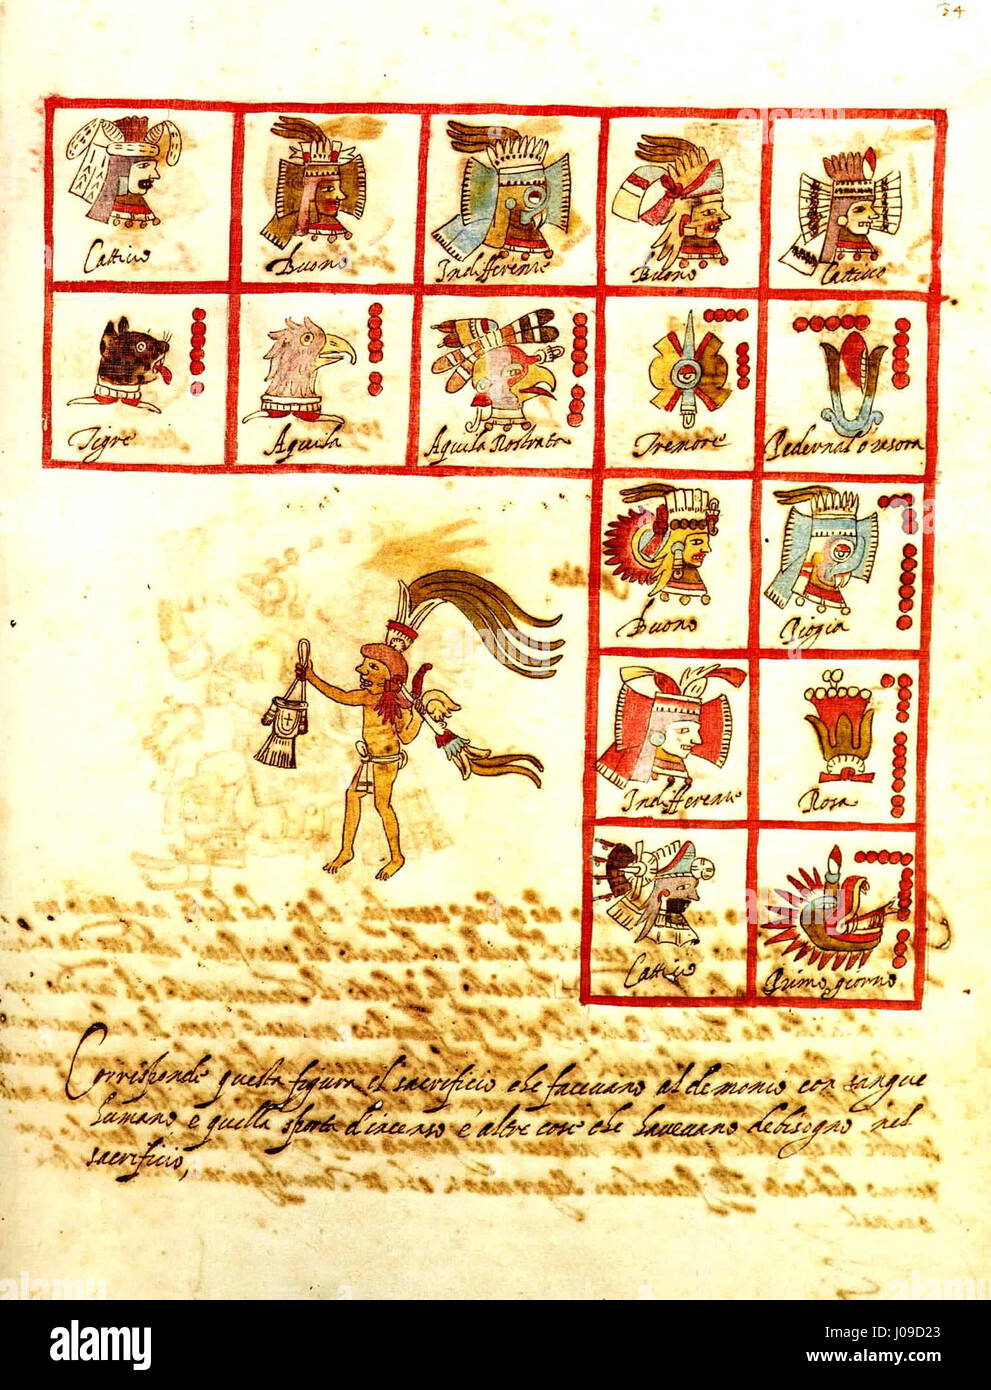 34
Cattivo Buono Indifferente Buono Cattivo
Tigre Aquila Aquila Rostrata Tremore Pedernal o rasora
Buono Piogia
Indifferente Rosa
Cattivo Primo giorno
Corrisponde questa figura el sacrificio che facevano al demonio con sangue
humano e quella sporta d'incenso e altre cose che havevano debisogno nel
sacrificio,
alamy
alamy stock photo
J09D23
www.alamy.com